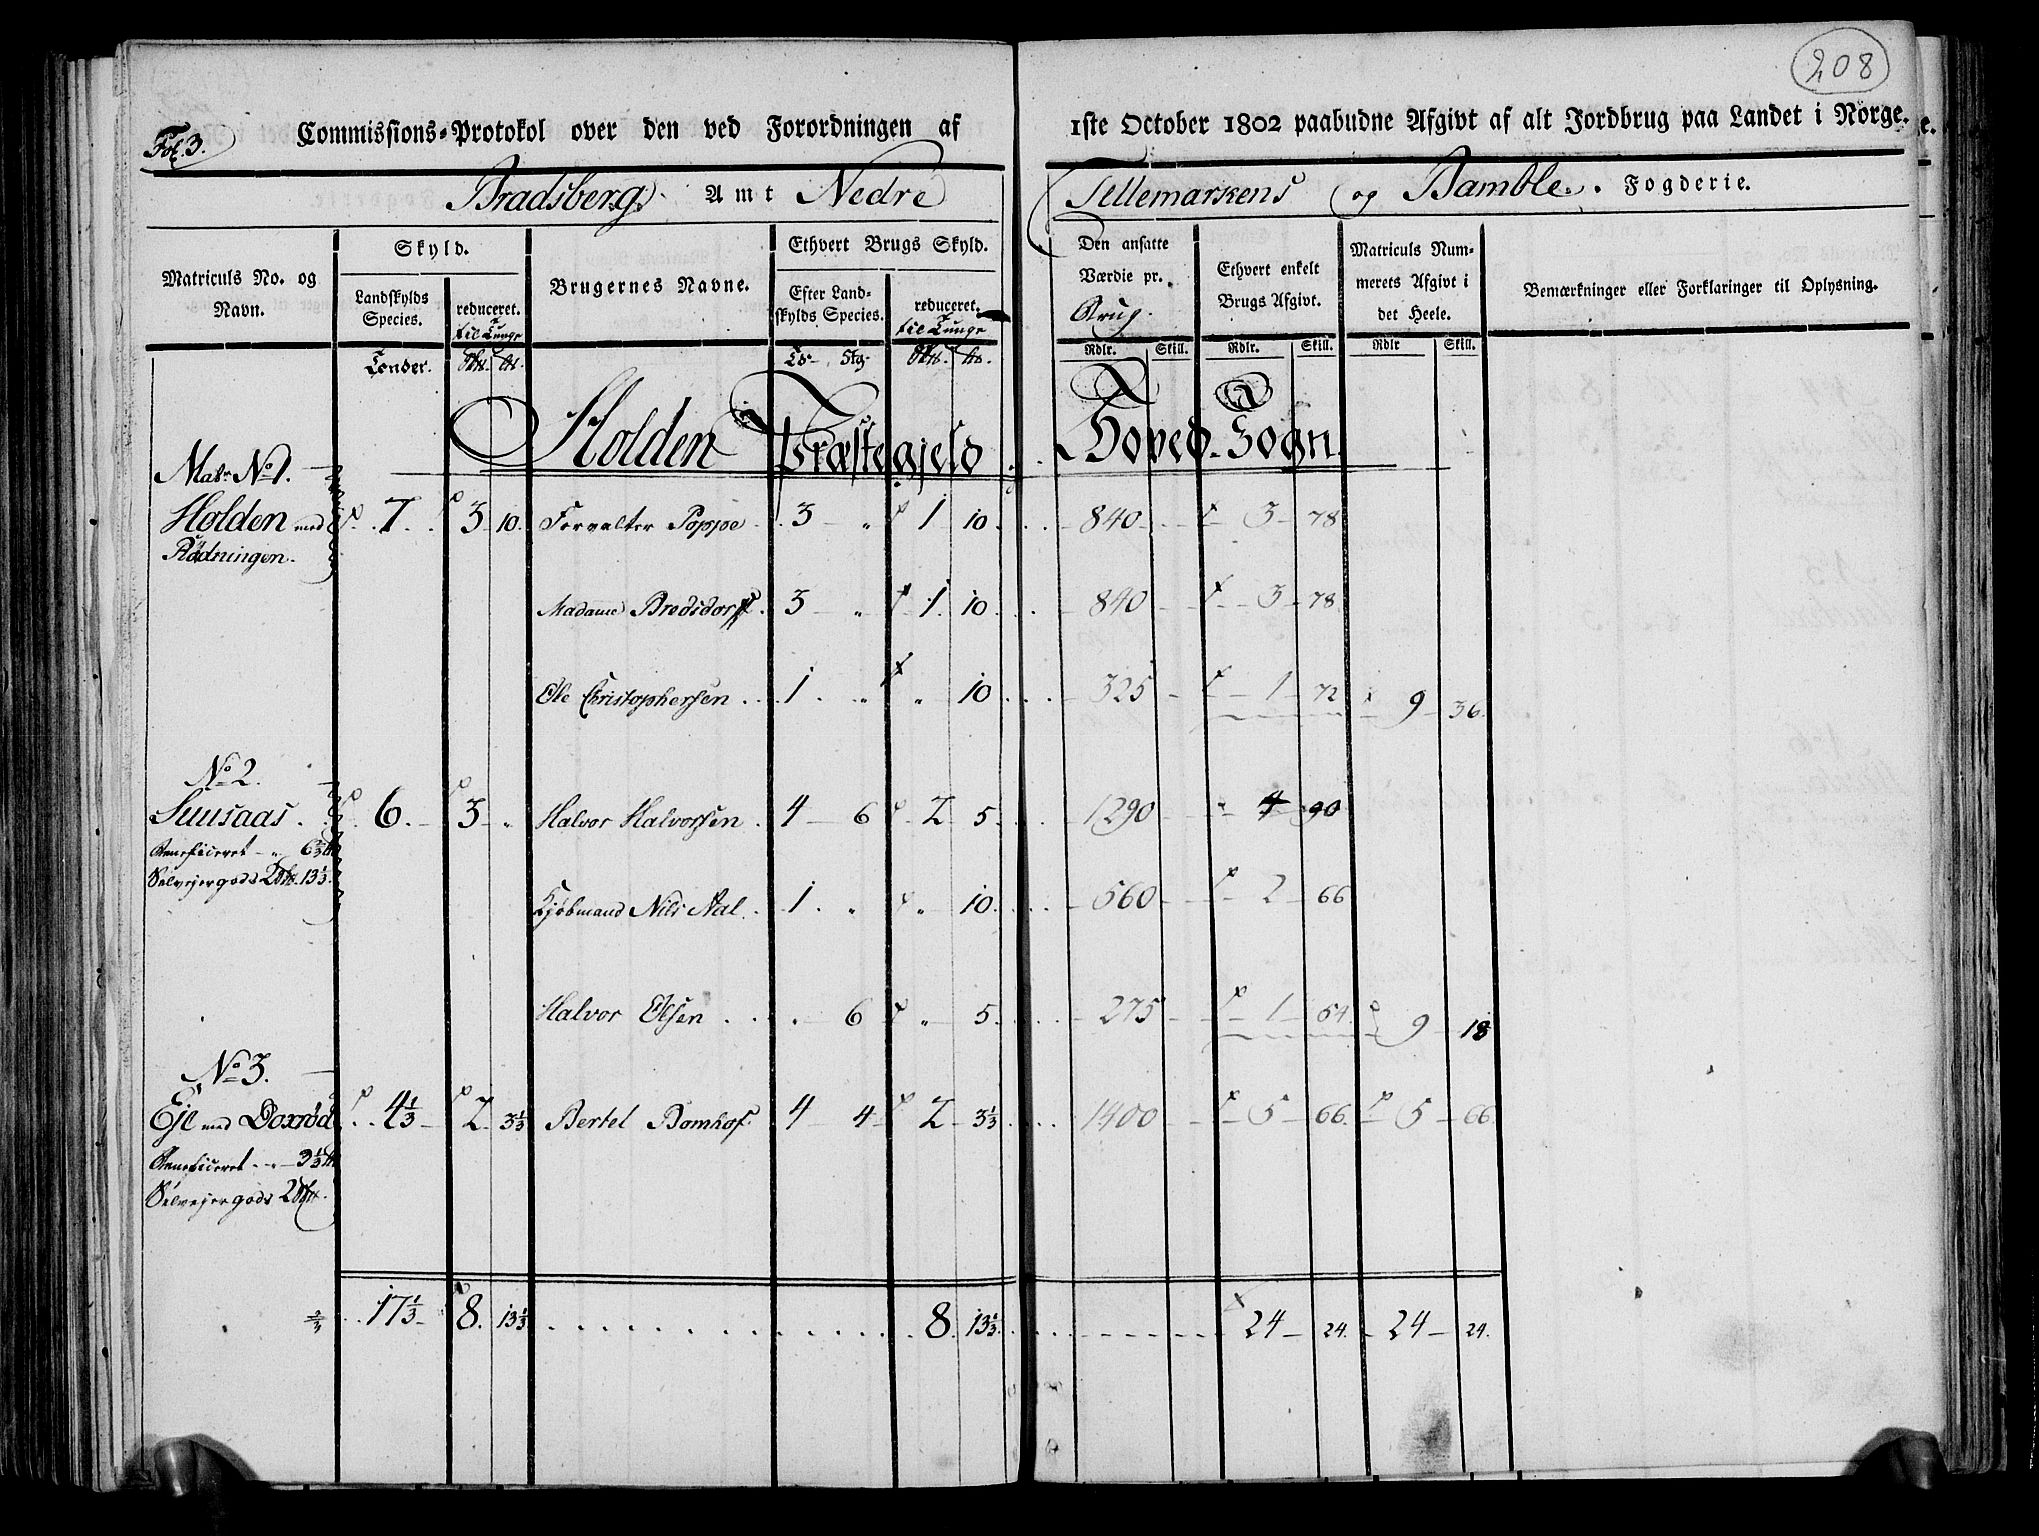 208
Fol. 3.
Commissions-Protokol over den ved Forordningen af 1ste October 1802 paabudne Afgivt af alt Jordbrug paa Landet i Norge.
Bradsberg Amt Nedre Tellemarkens og Bamble Fogderie.
Matriculs No. og Navn. | Skyld. | Brugernes Navne. | Ethvert Brugs Skyld. | Den ansatte Værdie pr. Brug. | Ethvert enkelt Brugs Afgivt. | Matriculs Nummerets Afgivt i det Heele. | Bemærkninger eller Forklaringer til Oplysning.
Landskylds Species. | reduceret. til Tunge | Efter Landskylds Species. | reduceret. til Tunge
Tønder. | Rdlr. Skill. | Rdlr. Skill. | Rdlr Skill.
Holden Præstegjeld Hoved-Sogn.
Matr No 1.
Holden med 7 3 10. Forvalter Poppe 3 " 1 10 840 3 78
Rødningen.
Madame Bredsdorff. 3 " 1. 10 840 3 78
Ole Christophersen 1 " " 10 325 1 72 9 36.
No 2.
Suusaas. 6. 3 " Halvor Halvorsen 4 6 2 5 1290 4 90
Beneficeret " 6 2/3
Selvejergods 2 13 1/3
Kjøbmand Nils Aal. 1 " " 10. 560 2 66
Halvor Olsen " 6 " 5. 275 1 54. 9 18
No 3.
Ejl med Doxrød 4 1/3 2 3 1/3 Bertel Bomhof 4 4 2 3 1/3 1400 5 66. 5 66.
Beneficeret " 3 1/3
Selvejergods 2
17 1/3 8. 13 1/3 8. 13 1/3 24 24. 24 24.